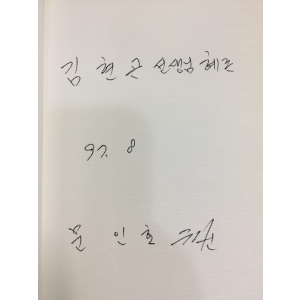 김 현 근 선생님 혜존
97. 8
문 인 호